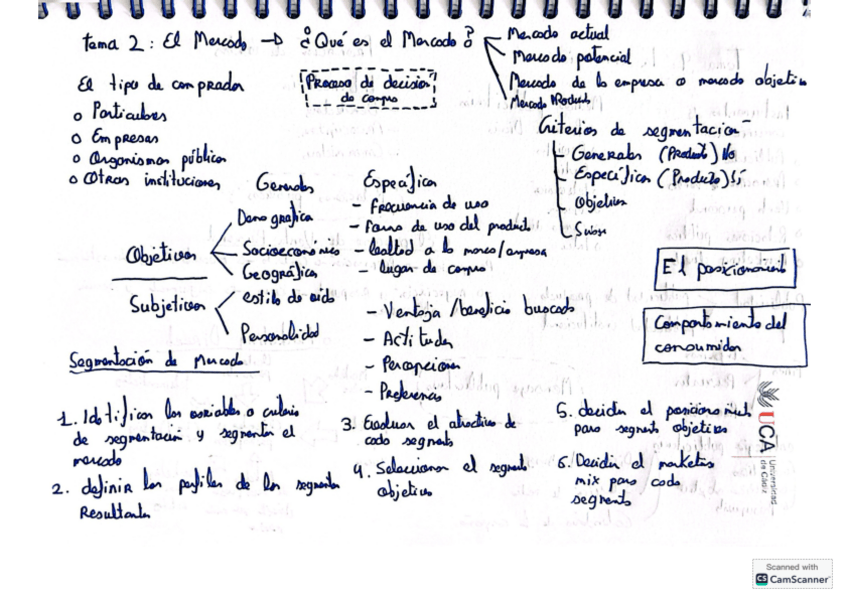 Tema 2: El Mercado → ¿Qué es el Mercado?
Mercado actual
Mercado potencial
Mercado de la empresa o mercado objetivo
Mercado Producto
El tipo de comprador
o Particulares
o Empresas
o Organismos públicos
o Otras instituciones
Proceso de decisión
de compra
Criterios de segmentación
Generales (Producto) No
Específicos (Producto) Sí
Objetivos
Generales
Específica
Objetivos
Demografica
Socioeconómico
Geográfica
- Frecuencia de uso
- Forma de uso del producto
- lealtad a la marca/empresa
- lugar de compra
Subjetivos
estilo de vida
Personalidad
- Ventaja /beneficio buscado
- Actitudes
- Percepciones
- Preferencias
El posicionamiento
Comportamiento del
consumidor
Segmentación de Mercado
1. Identifican las variables o criterio
de segmentación y segmentan el
mercado
2. definir los perfiles de los segmentos
Resultantes
3. Evaluar el atractivo de
cada segmento
4. Seleccionar el segmento
objetivo
5. decidir el posicionamiento
para segmento objetivos
6. Decidir el marketing
mix para cada
segmento
UCA
Universidad
de Cádiz
Scanned with
CS CamScanner